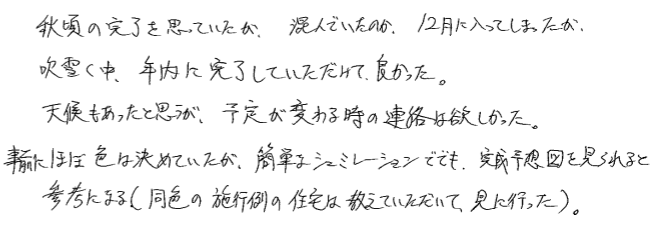 秋頃の完了を思っていたが、混んでいたのか、12月に入ってしまったが、
吹雪く中、年内に完了していただけて、良かった。
天候もあったと思うが、予定が変わる時の連絡は欲しかった。
事前にほぼ色は決めていたが、簡単なシュミレーションででも、完成予想図を見られると
参考になる(同色の施行例の住宅は教えていただいて、見に行った)。